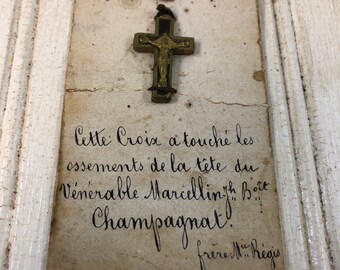 Cette Croix a touché les
ossements de la tête du
Vénérable Marcellin Jh Boît
Champagnat.
frère Mie Régis